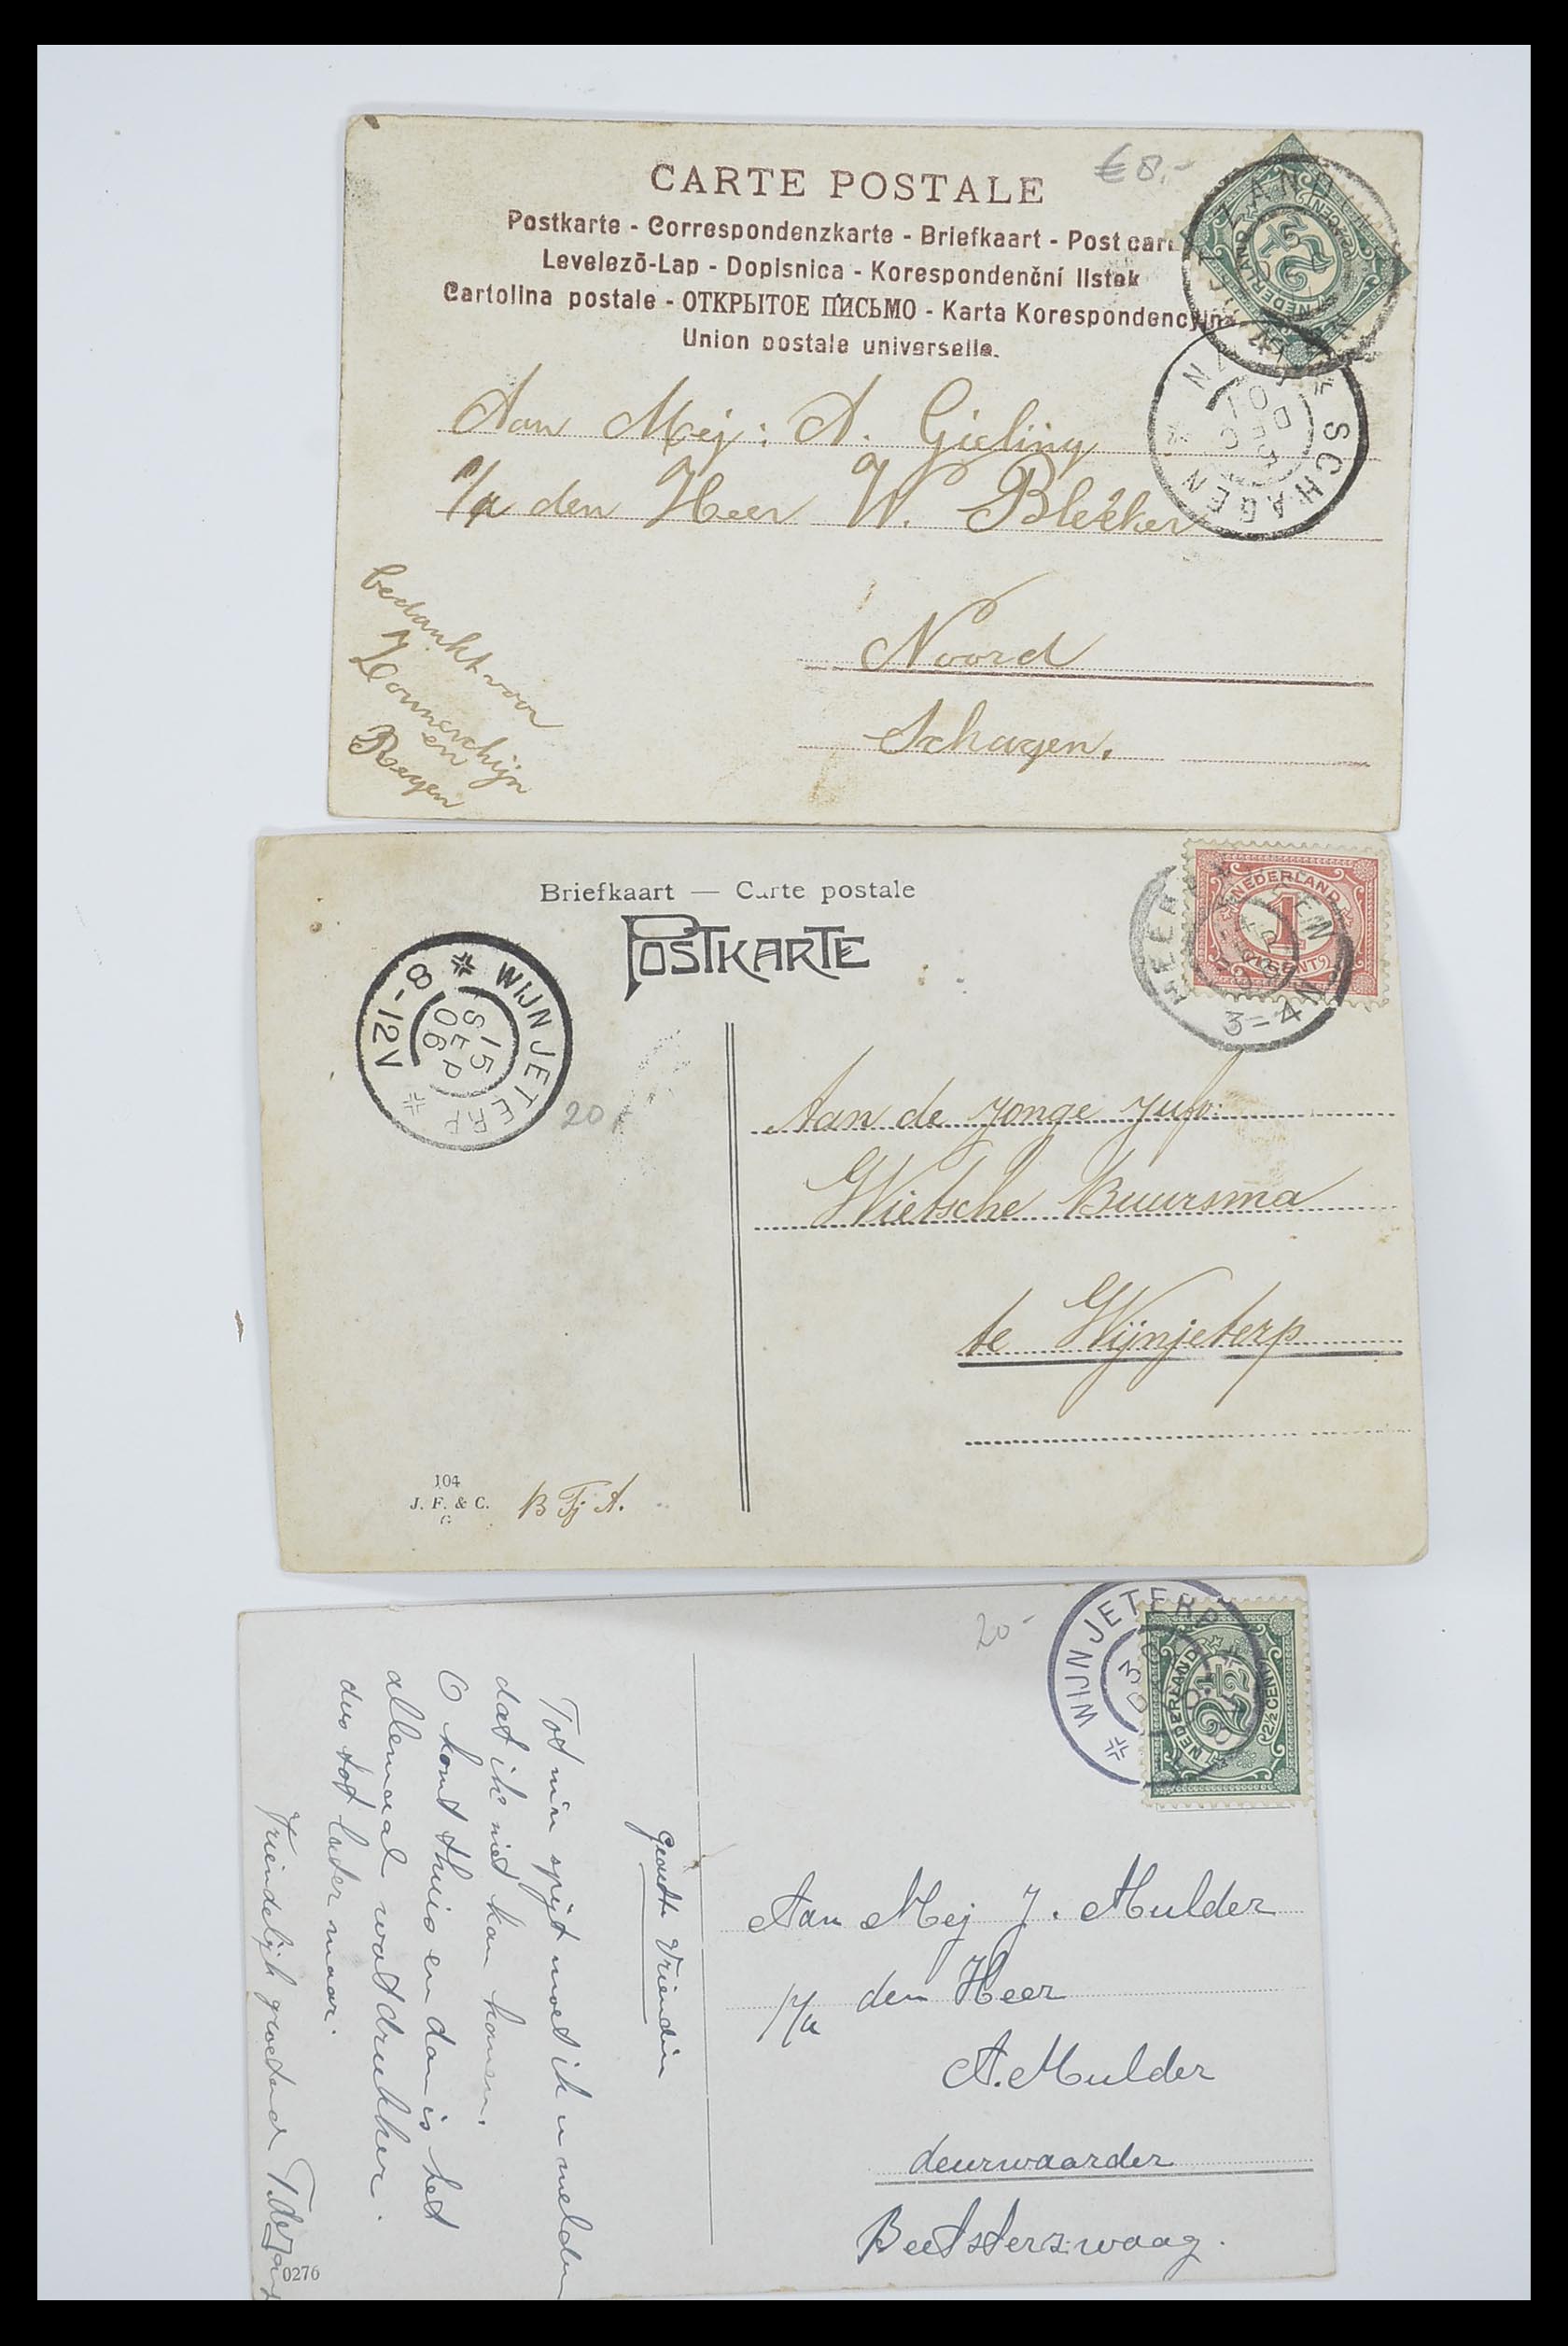 €8,-
CARTE POSTALE
Postkarte - Correspondenzkarte - Briefkaart - Post car
Levelező-Lap - Dopisnica - Korespondenční lístek
Cartolina postale - ОТКРЫТОЕ ПИСЬМО - Karta Korespondencyjna
Union postale universelle.
NEDERLAND
2½
2½ CENT
'T ZAND
SCHAGEN
DEC
01
Aan Mej: A. Gieling
p/a den Heer W. Blekker
Noord
Schagen.
bedankt voor
Zonneschijn
en
Regen
Briefkaart — Carte postale
POSTKARTE
NEDERLAND
1
1 CENT
HEERENVEEN
3-4 N
WIJNJETERP
15
SEP
06
8-12V
20,-
Aan de jonge jufr.
Wietsche Buursma
te Wijnjeterp
104
J. F. & C.
G
B Tj A.
20-
WIJNJETERP
NEDERLAND
2½
2½ CENT
Geachte Vriendin
Tot mijn spijt moet ik u melden
dat ik niet kan komen.
O komt thuis en dan is het
allemaal wat drukker.
dus tot later maar.
Vriendelijk groetend
Aan Mej J. Mulder
p/a den Heer
A. Mulder
deurwaarder
Beetsterzwaag.
0276